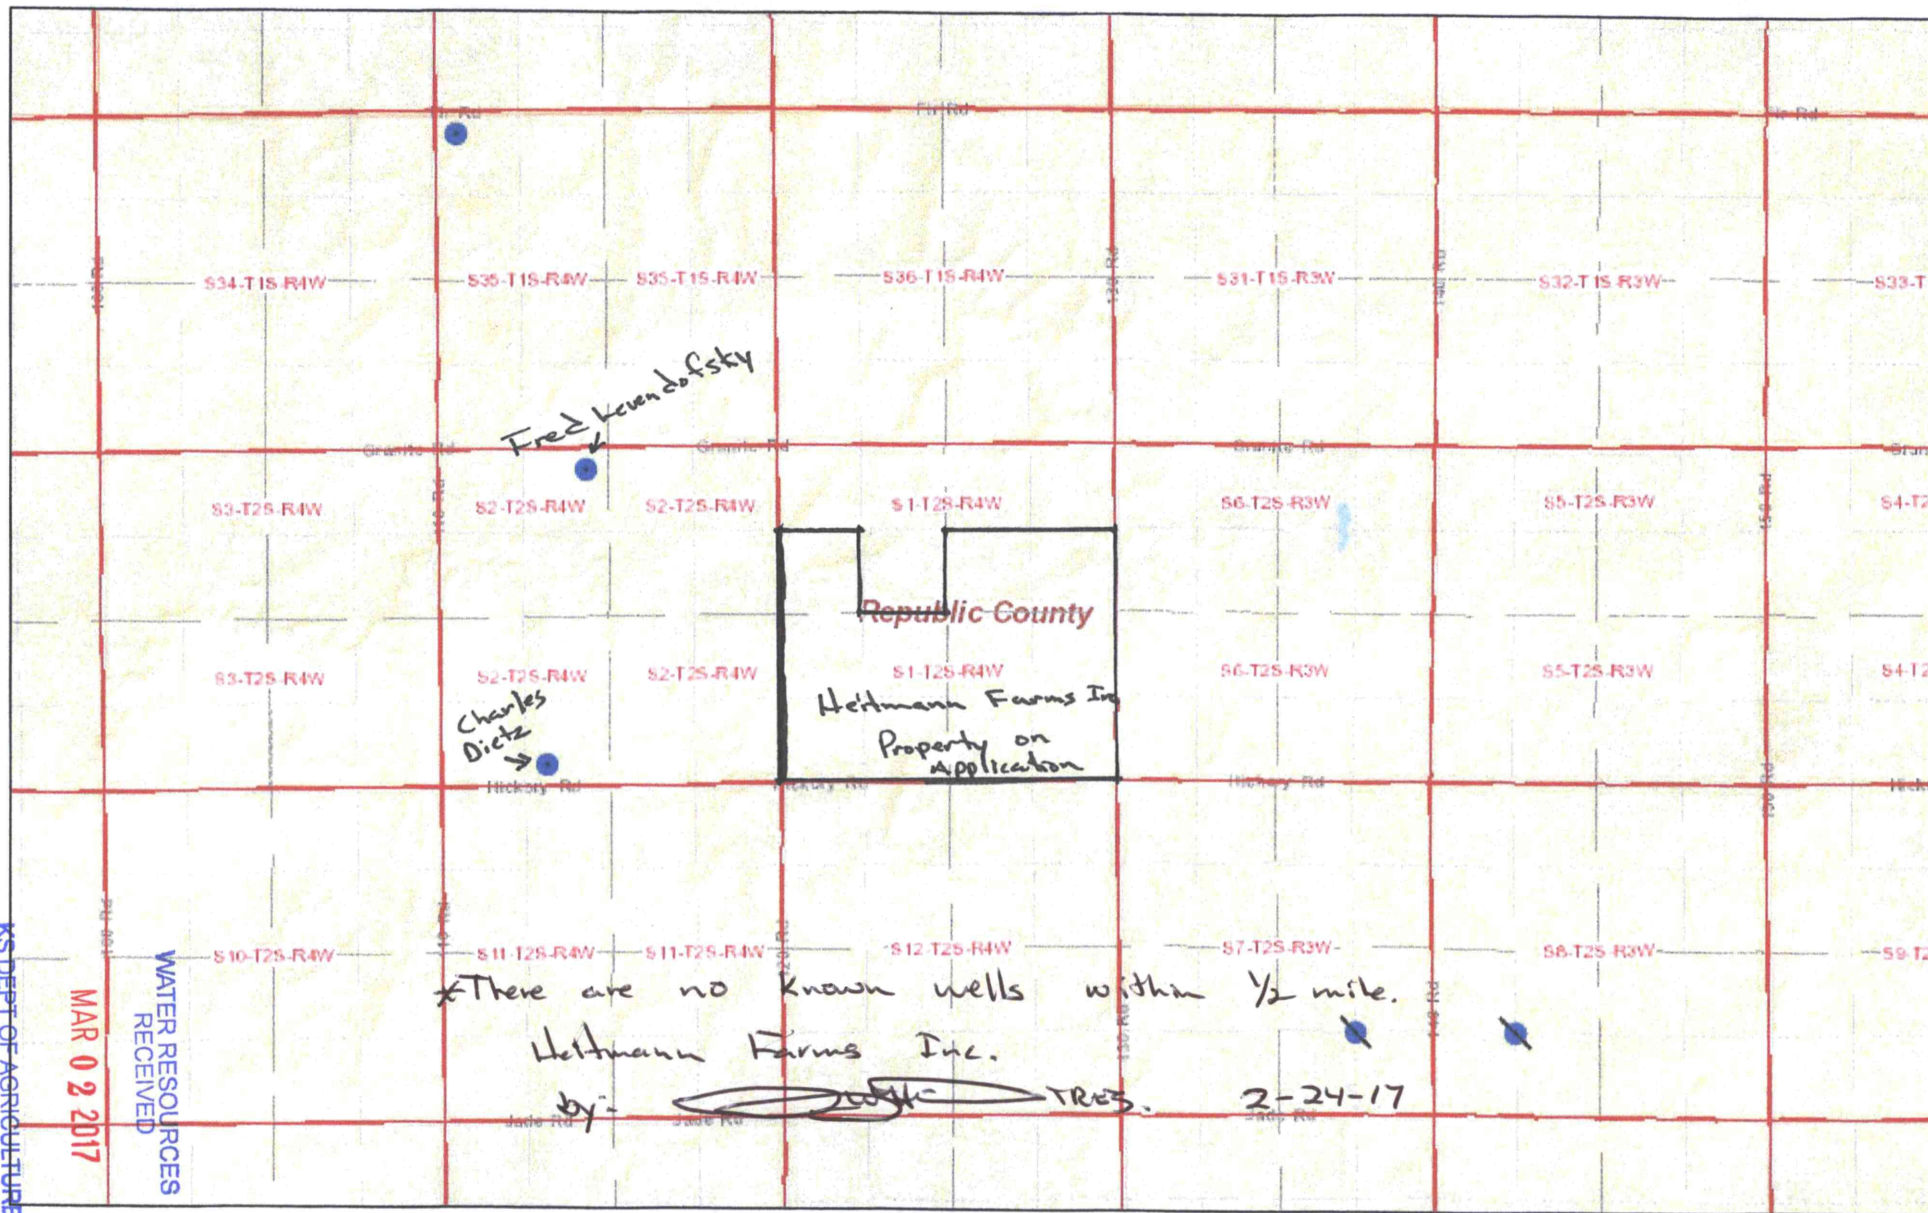 Fir Rd
Fir Rd
Fir Rd
S34-T1S-R4W
S35-T1S-R4W
S35-T1S-R4W
S36-T1S-R4W
130 Rd
S31-T1S-R3W
140 Rd
S32-T1S-R3W
S33-T
Fred Levendofsky
Granite Rd
Granite Rd
Granite Rd
Gran
S3-T2S-R4W
S2-T2S-R4W
S2-T2S-R4W
S1-T2S-R4W
S6-T2S-R3W
S5-T2S-R3W
150 Rd
S4-T2
Republic County
S3-T2S-R4W
S2-T2S-R4W
S2-T2S-R4W
S1-T2S-R4W
S6-T2S-R3W
S5-T2S-R3W
S4-T2
Heitmann Farms Inc
Property on
Application
Charles
Dietz
Hickory Rd
Hickory Rd
Hickory Rd
Hick
150 Rd
100 Rd
S10-T2S-R4W
S11-T2S-R4W
S11-T2S-R4W
120 Rd
S12-T2S-R4W
S7-T2S-R3W
S8-T2S-R3W
S9-T2
*There are no known wells within 1/2 mile.
130 Rd
Heitmann Farms Inc.
by-
TRES.
2-24-17
Jade Rd
Jade Rd
Jade Rd
WATER RESOURCES
RECEIVED
MAR 02 2017
KS DEPT OF AGRICULTURE